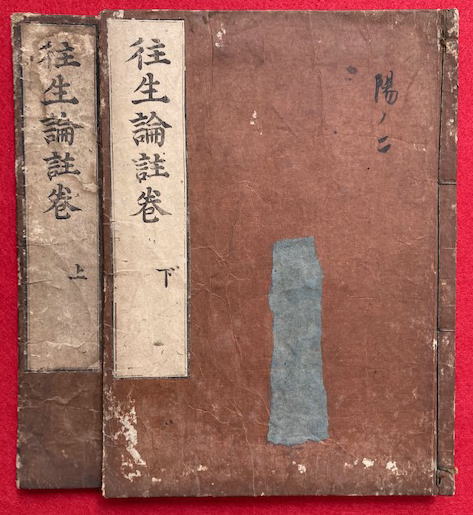 陽ノ二
往生論註卷
下
往生論註卷
上